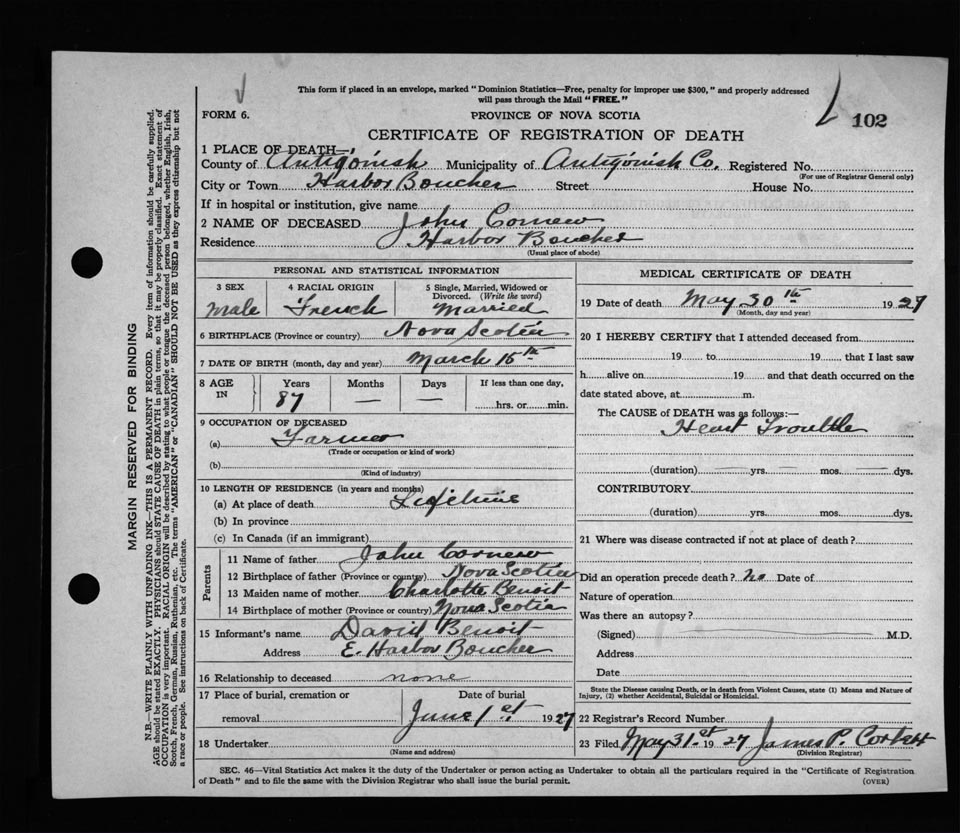 This form if placed in an envelope, marked "Dominion Statistics—Free, penalty for improper use $300," and properly addressed
will pass through the Mail "FREE."
102
FORM 6.
PROVINCE OF NOVA SCOTIA
CERTIFICATE OF REGISTRATION OF DEATH
1 PLACE OF DEATH—
County of Antigonish Municipality of Antigonish Co. Registered No.
(For use of Registrar General only)
City or Town Harbor Boucher Street House No.
If in hospital or institution, give name
2 NAME OF DECEASED John Cornew
Residence Harbor Boucher
(Usual place of abode)
PERSONAL AND STATISTICAL INFORMATION
3 SEX 4 RACIAL ORIGIN 5 Single, Married, Widowed or
Divorced. (Write the word)
Male French Married
6 BIRTHPLACE (Province or country) Nova Scotia
7 DATE OF BIRTH (month, day and year) March 15th
8 AGE IN Years Months Days If less than one day,
87 — — hrs. or min.
9 OCCUPATION OF DECEASED
(a) Farmer
(Trade or occupation or kind of work)
(b)
(Kind of industry)
10 LENGTH OF RESIDENCE (in years and months)
(a) At place of death Lifetime
(b) In province
(c) In Canada (if an immigrant)
Parents
11 Name of father John Cornew
12 Birthplace of father (Province or country) Nova Scotia
13 Maiden name of mother Charlotte Benoit
14 Birthplace of mother (Province or country) Nova Scotia
15 Informant's name David Benoit
Address E. Harbor Boucher
16 Relationship to deceased none
17 Place of burial, cremation or Date of burial
removal June 1st 1927
18 Undertaker
(Name and address)
MEDICAL CERTIFICATE OF DEATH
19 Date of death May 30th 1927
(Month, day and year)
20 I HEREBY CERTIFY that I attended deceased from
19 to 19 that I last saw
h alive on 19 and that death occurred on the
date stated above, at m.
The CAUSE of DEATH was as follows:—
Heart Trouble
(duration) — yrs. — mos. — dys.
CONTRIBUTORY
(duration) yrs. mos. dys.
21 Where was disease contracted if not at place of death?
Did an operation precede death? no Date of
Nature of operation
Was there an autopsy?
(Signed) M.D.
Address
Date
State the Disease causing Death, or in death from Violent Causes, state (1) Means and Nature of
Injury, (2) whether Accidental, Suicidal or Homicidal.
22 Registrar's Record Number
23 Filed May 31st 1927 James P. Corbett
(Division Registrar)
SEC. 46—Vital Statistics Act makes it the duty of the Undertaker or person acting as Undertaker to obtain all the particulars required in the "Certificate of Registration
of Death" and to file the same with the Division Registrar who shall issue the burial permit.
(OVER)
MARGIN RESERVED FOR BINDING
N.B.—WRITE PLAINLY WITH UNFADING INK—THIS IS A PERMANENT RECORD. Every item of information should be carefully supplied.
AGE should be stated EXACTLY. PHYSICIANS should STATE CAUSE OF DEATH in plain terms, so that it may be properly classified. Exact statement of
OCCUPATION is very important. RACIAL ORIGIN will be described by stating to what people or tongue the deceased person belonged, whether English, Irish,
Scotch, French, German, Russian, Ruthenian, etc. The terms "AMERICAN" or "CANADIAN" SHOULD NOT BE USED as they express citizenship but not
a race or people. See instructions on back of Certificate.